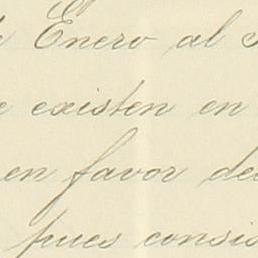 Enero al
existen en
en favor de
pues consis